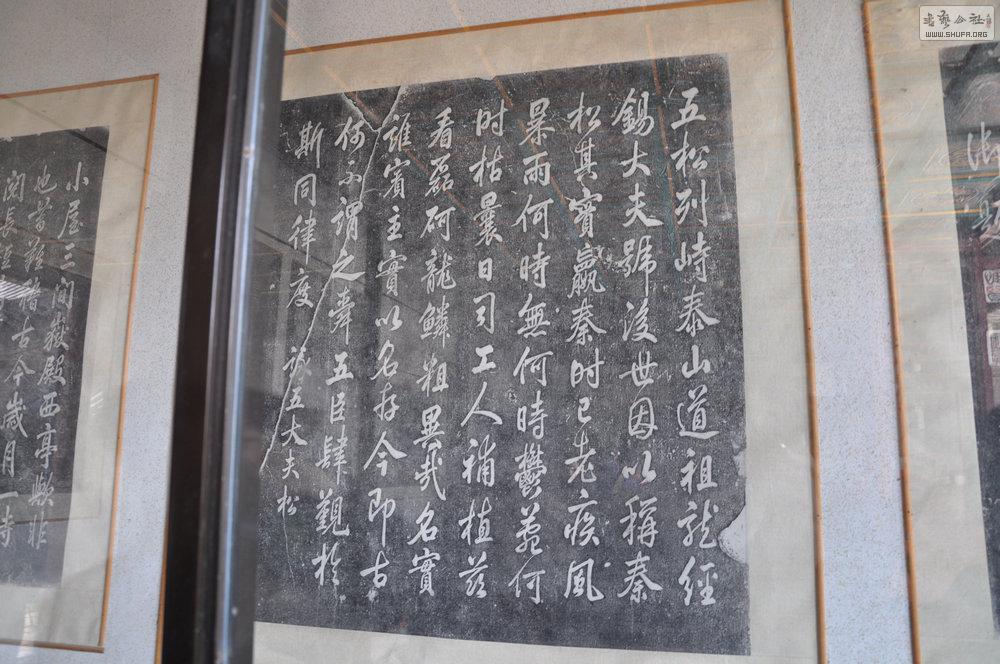 御題
五松列峙泰山道祖龍經
錫大夫號後世因以稱秦
松其實嬴秦時已老疾風
暴雨何時無何時欝菀何
时枯曩日司工人補植茲
看磊砢龍鱗粗異哉名實
誰賓主實以名存今即古
何不謂之舜五臣肆覲於
斯同律度 詠五大夫松
小屋三間嶽殿西亭歟非
也昔難稽古今歲月一
閱長
書藝公社
WWW.SHUFA.ORG